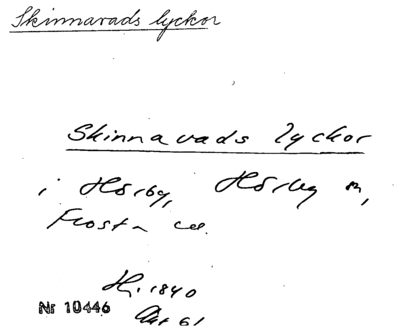 Skinnavads lyckor
Skinnavads lyckor
i Hörby, Hörby sn,
Frosta
H. 1840
Nr 10446
61